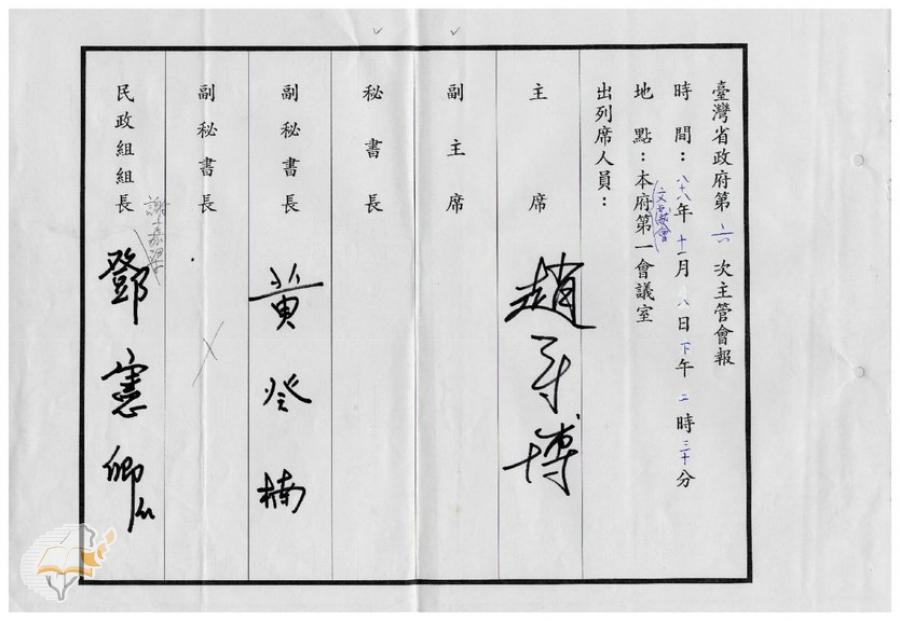 臺灣省政府第 六 次主管會報
時間：八十八年 十一月 八日 下午 二 時 三十分
地點：本府第一會議室
出列席人員：
主席 趙守博
副主席
秘書長
副秘書長 黃癸楠
副秘書長
民政組組長 鄧憲卿